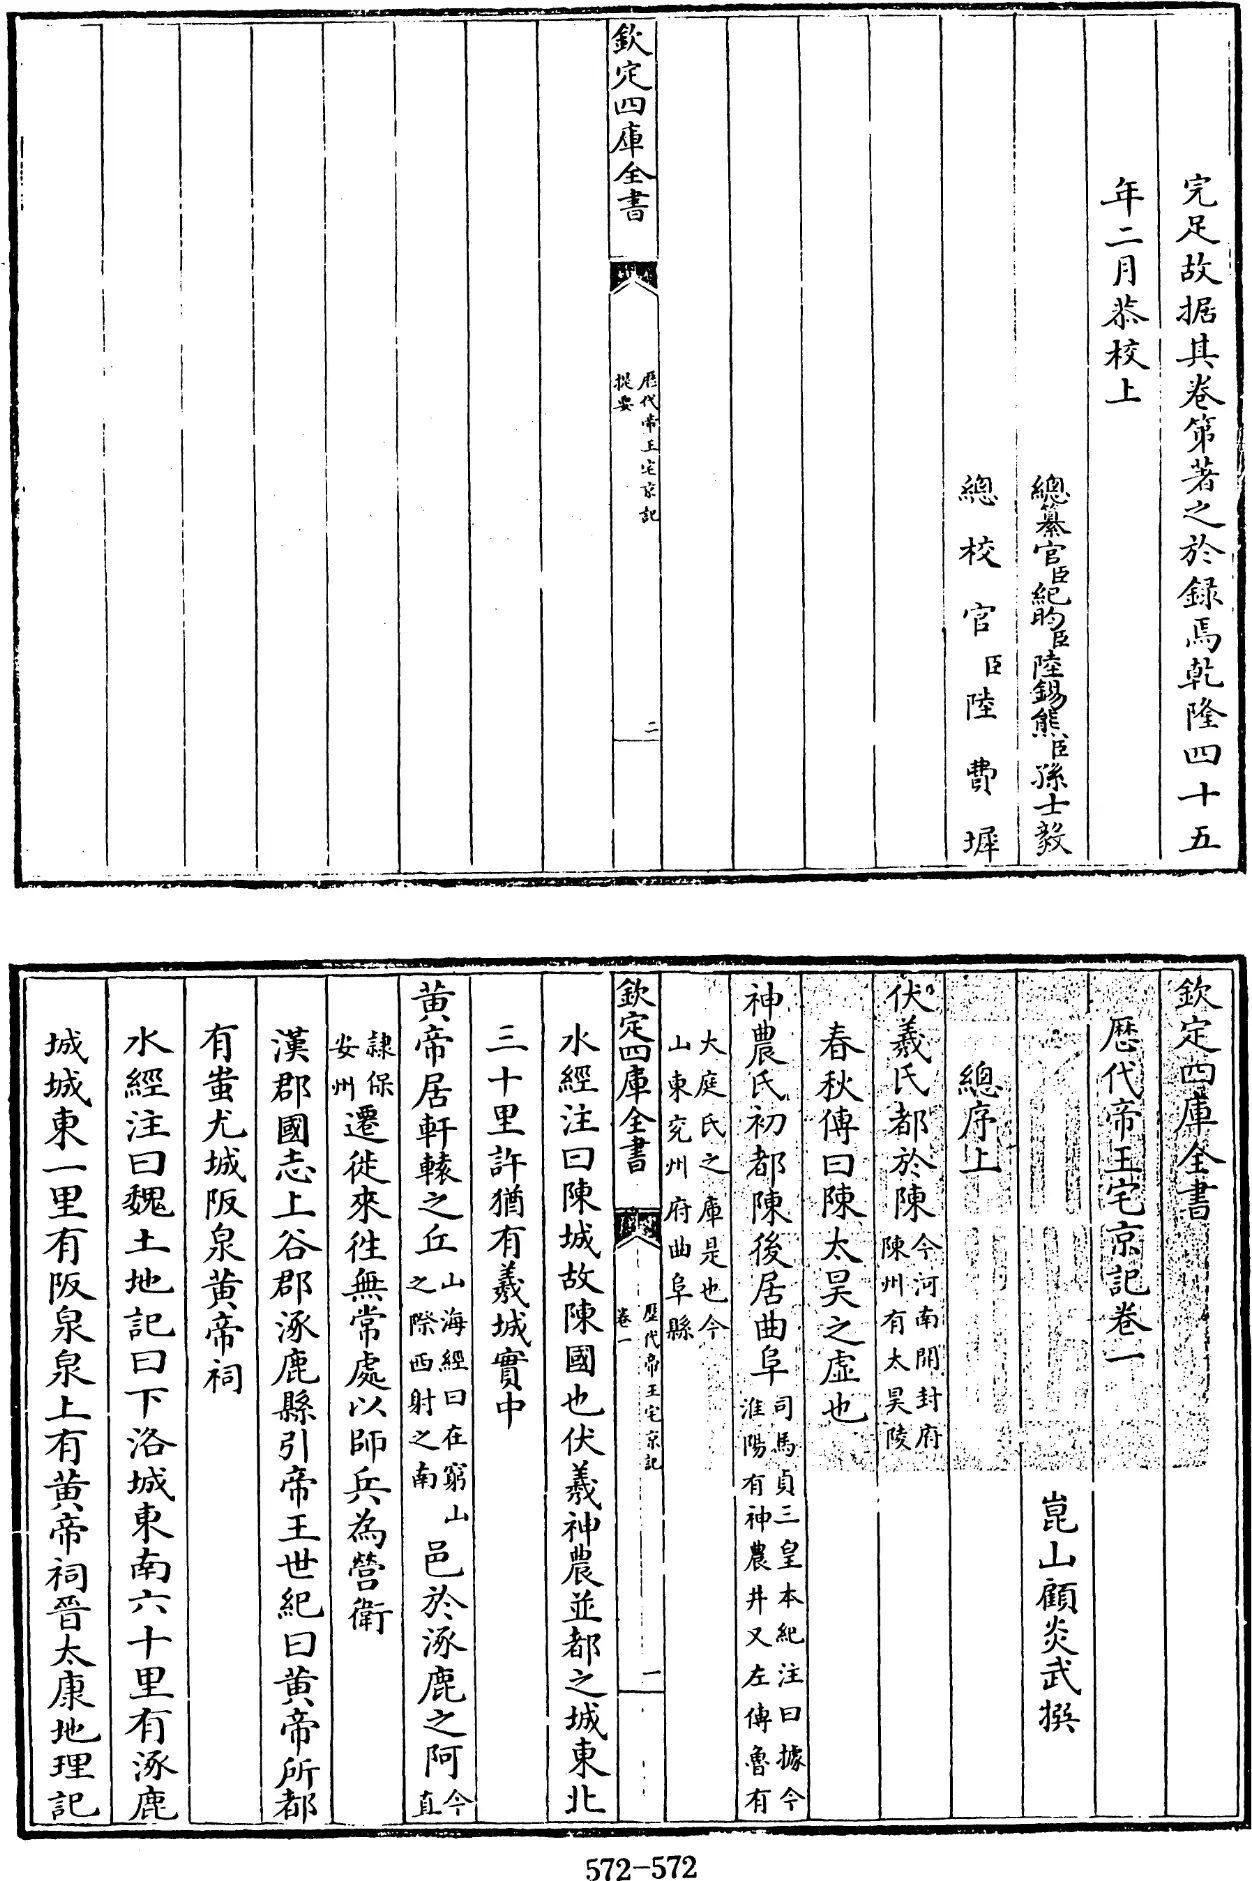 完足故据其卷第著之於録焉乾隆四十五
年二月恭校上
總纂官臣紀昀臣陸錫熊臣孫士毅
總校官臣陸費墀
欽定四庫全書
歷代帝王宅京記
提要
二
欽定四庫全書
歷代帝王宅京記卷一
崑山顧炎武撰
總序上
伏羲氏都於陳今河南開封府陳州有太昊陵
春秋傳曰陳太昊之虛也
神農氏初都陳後居曲阜司馬貞三皇本紀注曰據今淮陽有神農井又左傳魯有
大庭氏之庫是也今山東兖州府曲阜縣
欽定四庫全書
歷代帝王宅京記
卷一
一
水經注曰陳城故陳國也伏羲神農並都之城東北
三十里許猶有羲城實中
黄帝居軒轅之丘山海經曰在窮山之際西射之南邑於涿鹿之阿今直
隸保安州遷徙來徃無常處以師兵為營衛
漢郡國志上谷郡涿鹿縣引帝王世紀曰黄帝所都
有蚩尤城阪泉黄帝祠
水經注曰魏土地記曰下洛城東南六十里有涿鹿
城城東一里有阪泉泉上有黄帝祠晉太康地理記
572-572